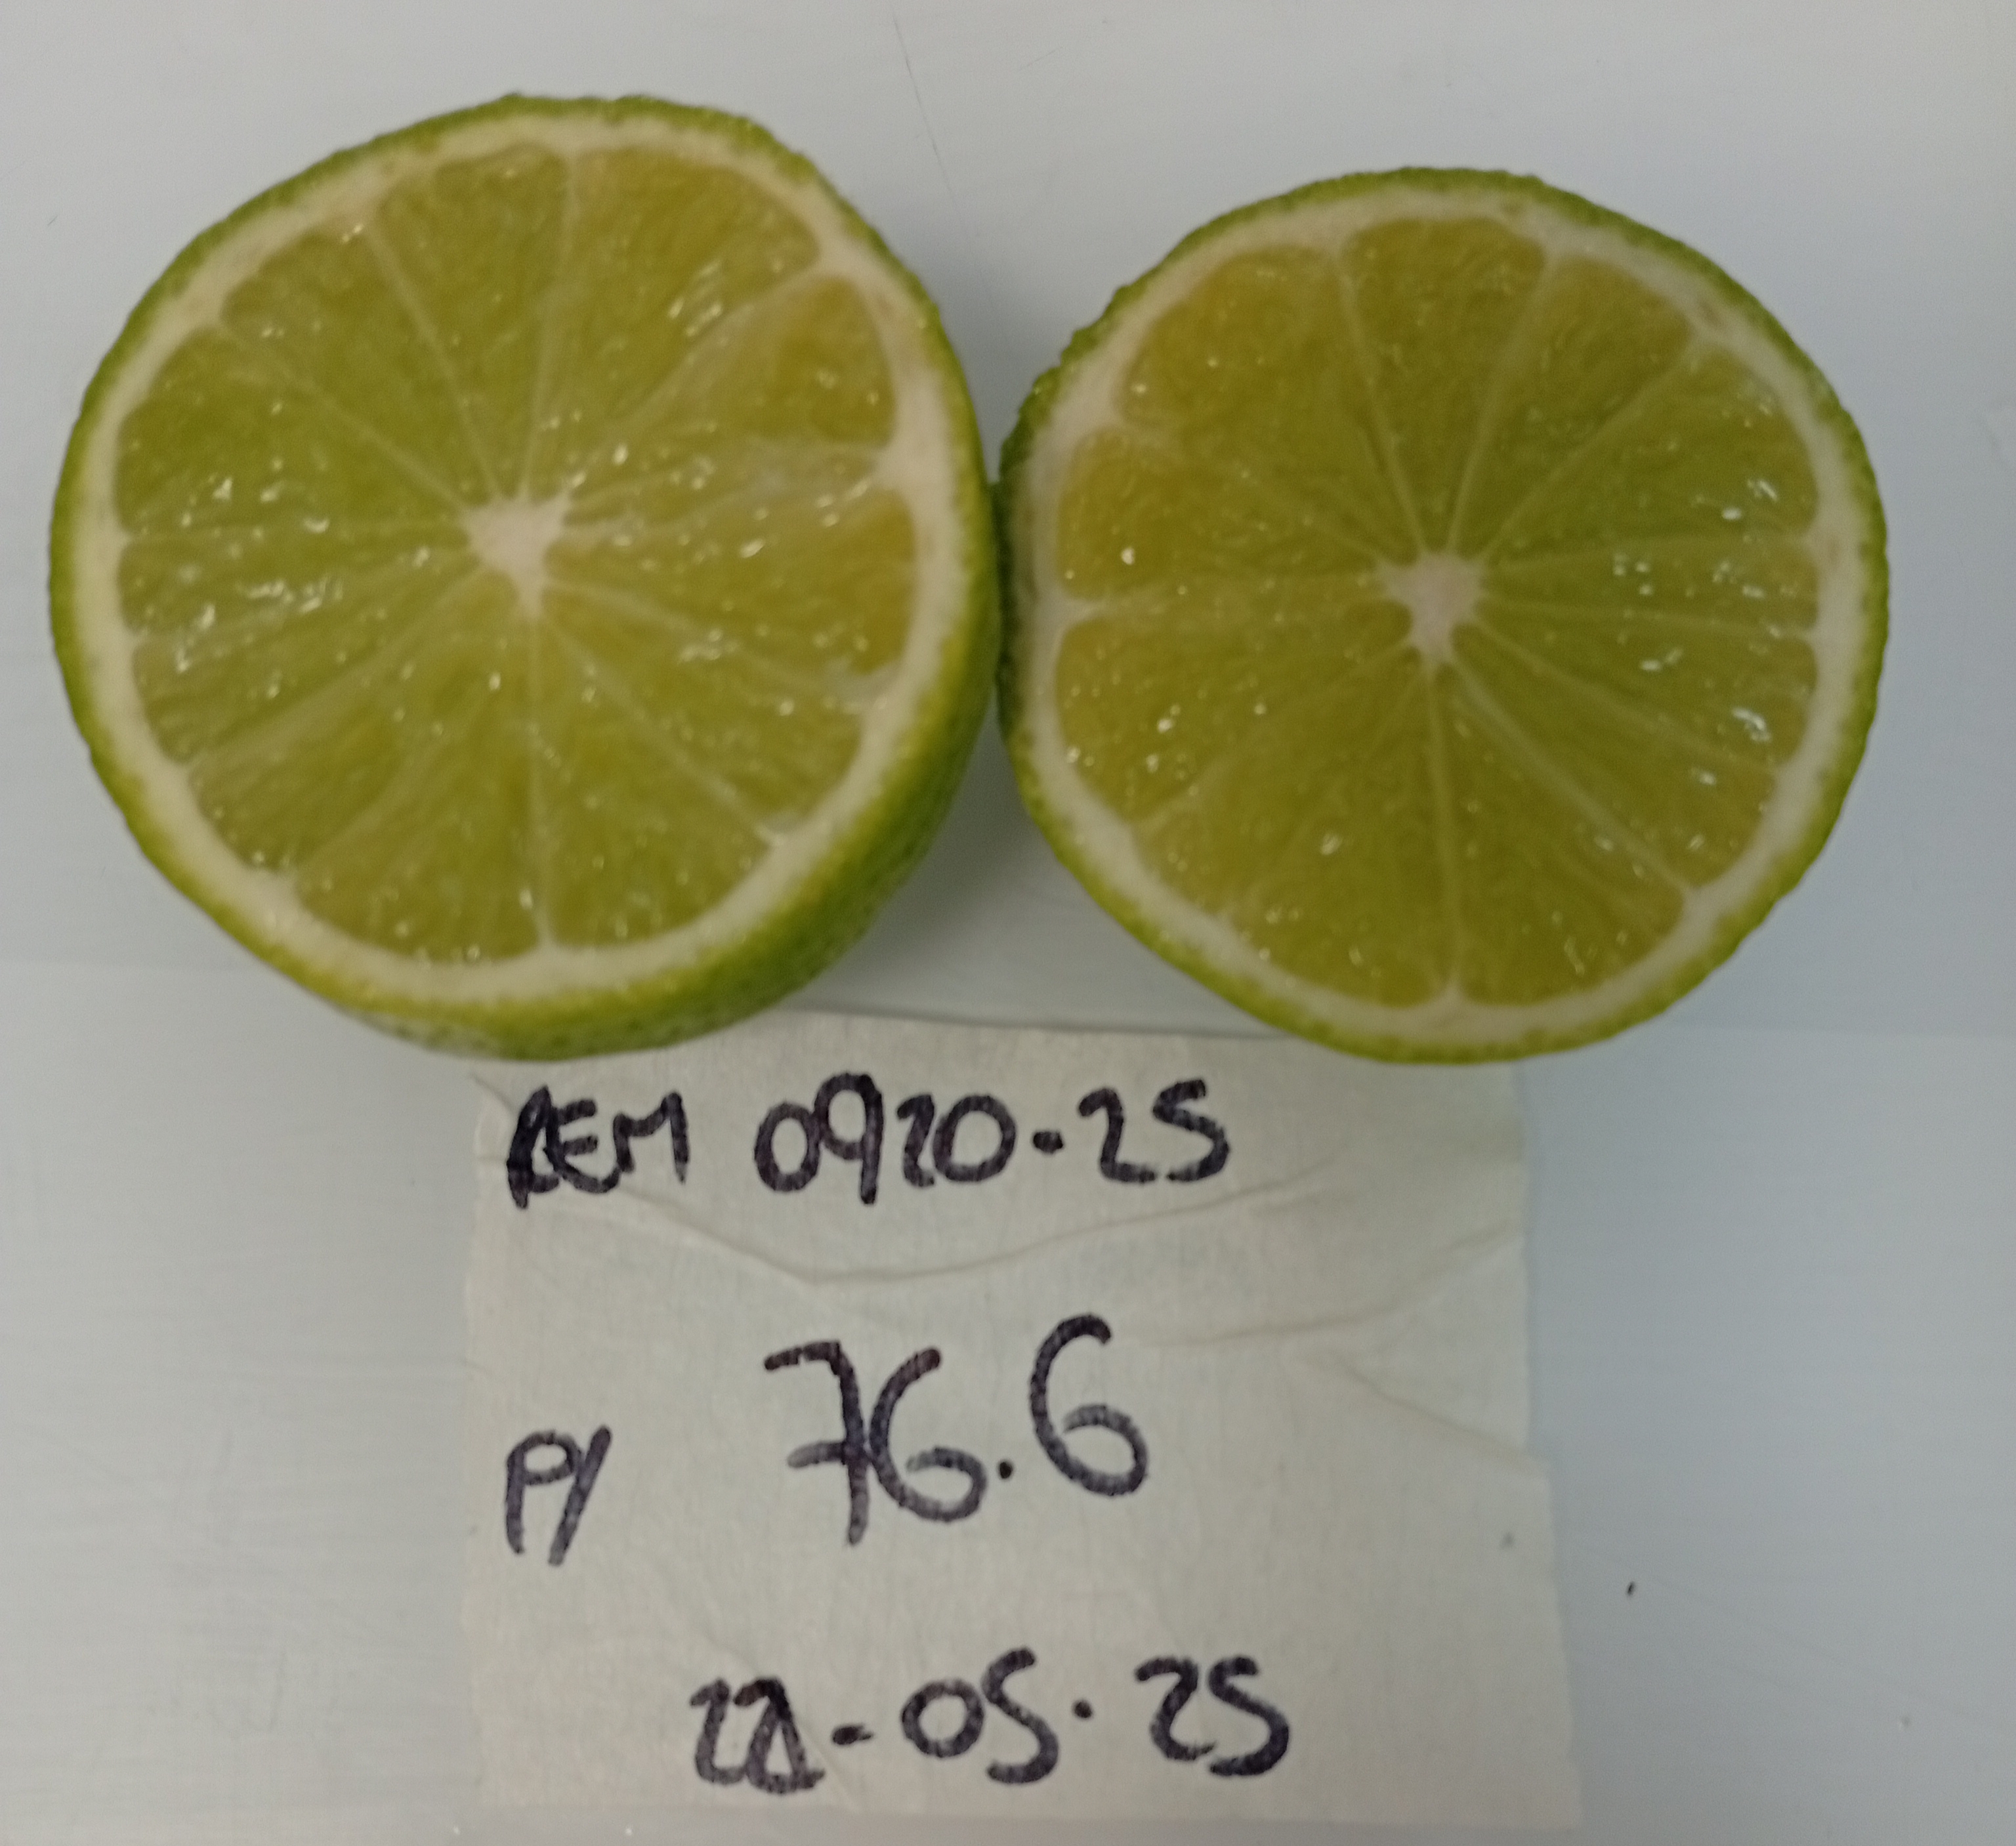 REM 0920-25
P/ 76.6
22-05-25